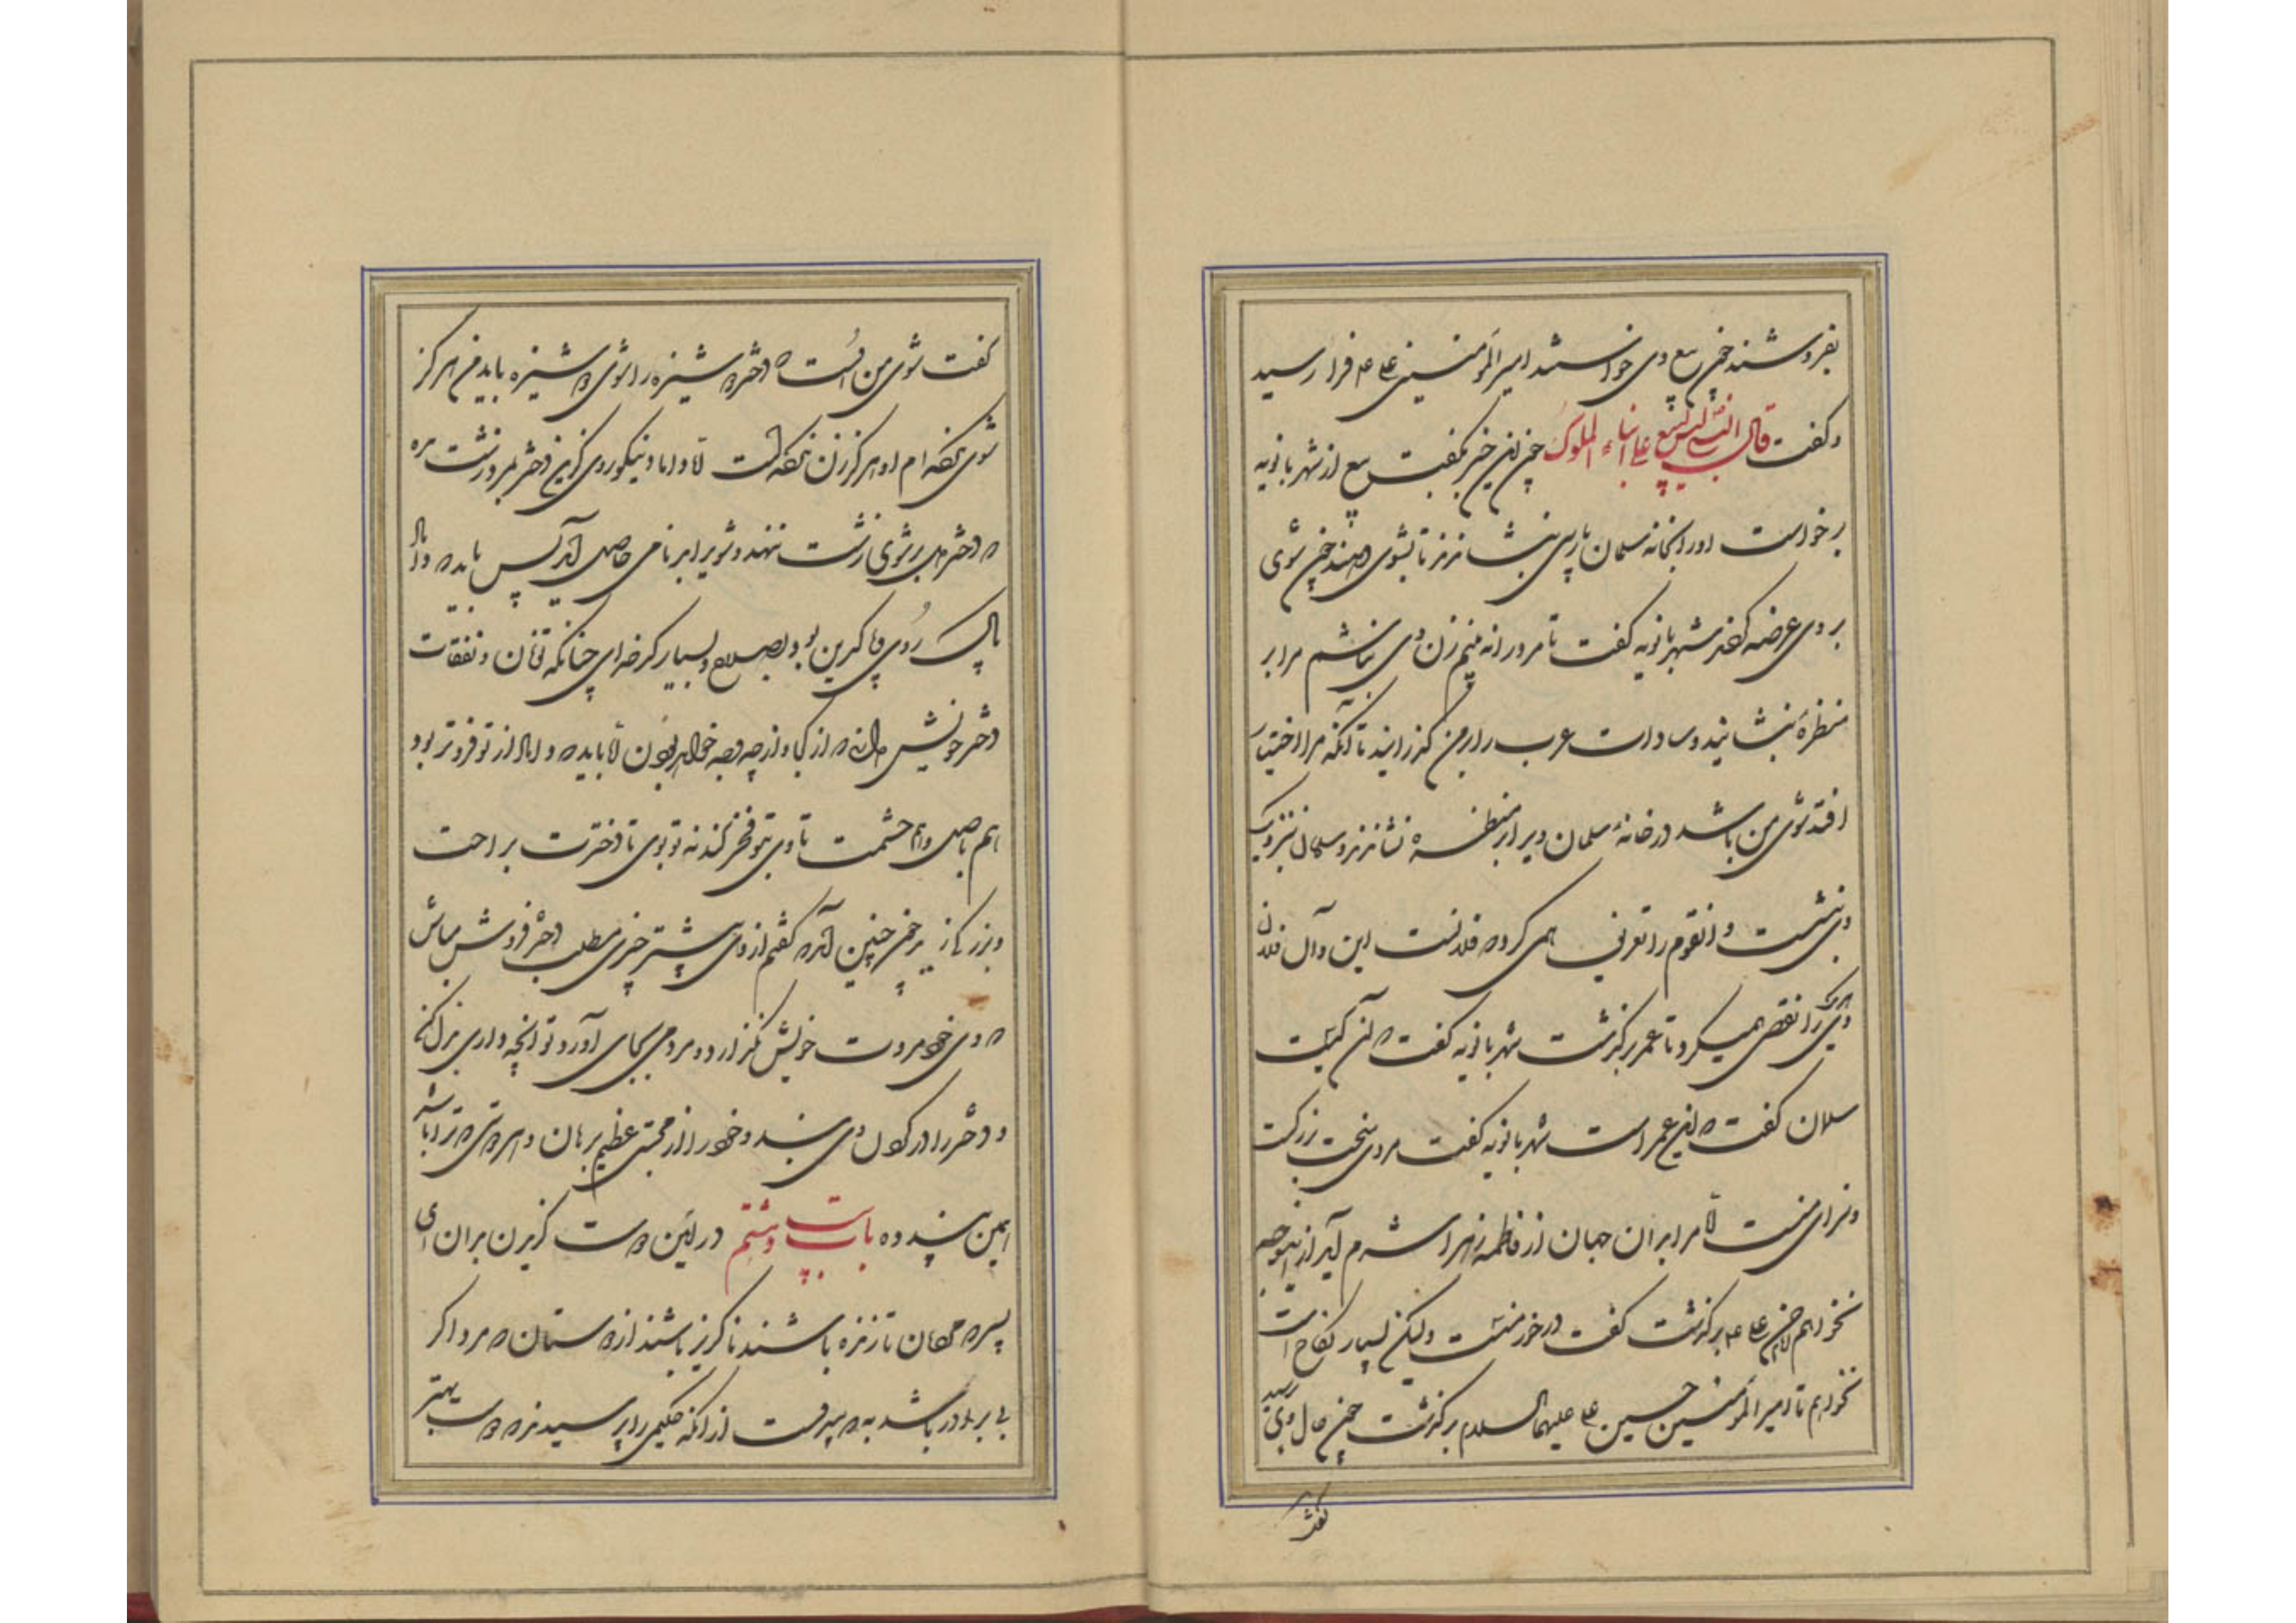 بفروشند چون ببیع وی خواستند امیرالمؤمنین علی ع م فرا رسید
و کفت قال النبی لیس البیع علی ابناء الملوک چون این خبر بکفت بیع از شهربانویه
برخواست او را بخانه سلمان پارسی بنشاندند تا بشوی دهند چون شوی
بر وی عرضه کردند شهربانویه کفت تا مرد را نه بینم زن وی نباشم مرا بر
منظرهٔ بنشانید و سادات عرب را بر من کذرانید تا آنکه مرا اختیار
افتد شوی من باشد در خانهٔ سلمان ویرا بر منظره نشاندند و سلمان بنزدیک
وی بنشست و آنقوم را تعریف همی کرد که فلانست این و آن فلان
و هر یکی را نقصی همیکرد تا عمر بر کذشت شهربانویه کفت که این کیست
سلمان کفت که این عمر است شهربانویه کفت مردی سخت بزرکست
نخواهم چون علی ع م برکذشت کفت در خور منست ولیکن بسیار نکاح است
نخواهم تا امیرالمؤمنین حسین علی علیهما السلام برکذشت چون حال وی پرسید
کفت شوی من اینست که دختر دوشیزه را شوی دوشیزه باید من هرکز
شوی نکرده ام او هرکز زن نکرده است اما داماد نیکوروی کزین و دختر بمرد زشت مده
که دختر دل بر شوی زشت ننهد و شویرا بدنامی حاصل آید پس باید که داماد
پاک روی و پاک دین بود و بصلاح و بسیار کدخدای چنانکه نان و نفقات
دختر خویش دانی که از کجا و از چه وجه خواهد بودن اما باید که داماد از تو فروتر بود
هم باصل و هم حشمت تا وی بتو فخر کند نه تو بوی تا دخترت براحت
و بزرک زید چون چنین آمد که کفتم از وی بیشتر چیزی مطلب و دختر فروش مباش
که وی خود مروت خویش نکذارد و مردمی بجای آورد تو آنچه داری بذل کن
و دختر را در کردن وی بند و خود را از محنتی عظیم برهان و هر دوستی که ترا باشد
همین پند ده باب بیست و هشتم در آئین دوست کزیدن بدان ای
پسر که مردمان تا زنده باشند ناکزیر باشند از دوستان که مرد اکر
بی برادر باشد به که بیدوست از آنکه حکیمی را پرسیدند که دوست بهتر